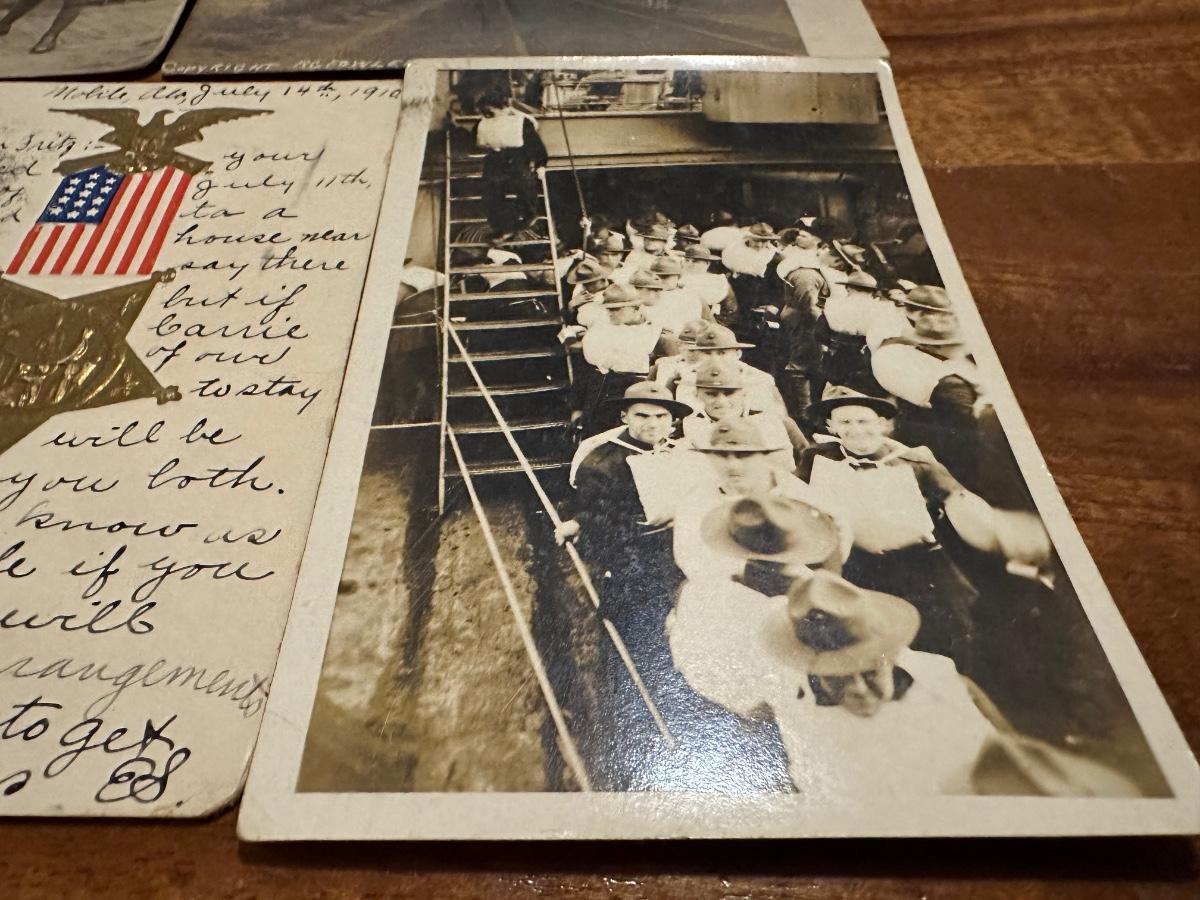 COPYRIGHT
Mobile, Ala, July 14th, 1910
Fritz:
your
July 11th,
to a
house near
say there
but if
Carrie
of our
to stay
will be
you both.
know as
if you
will
rangements
to get
ES.